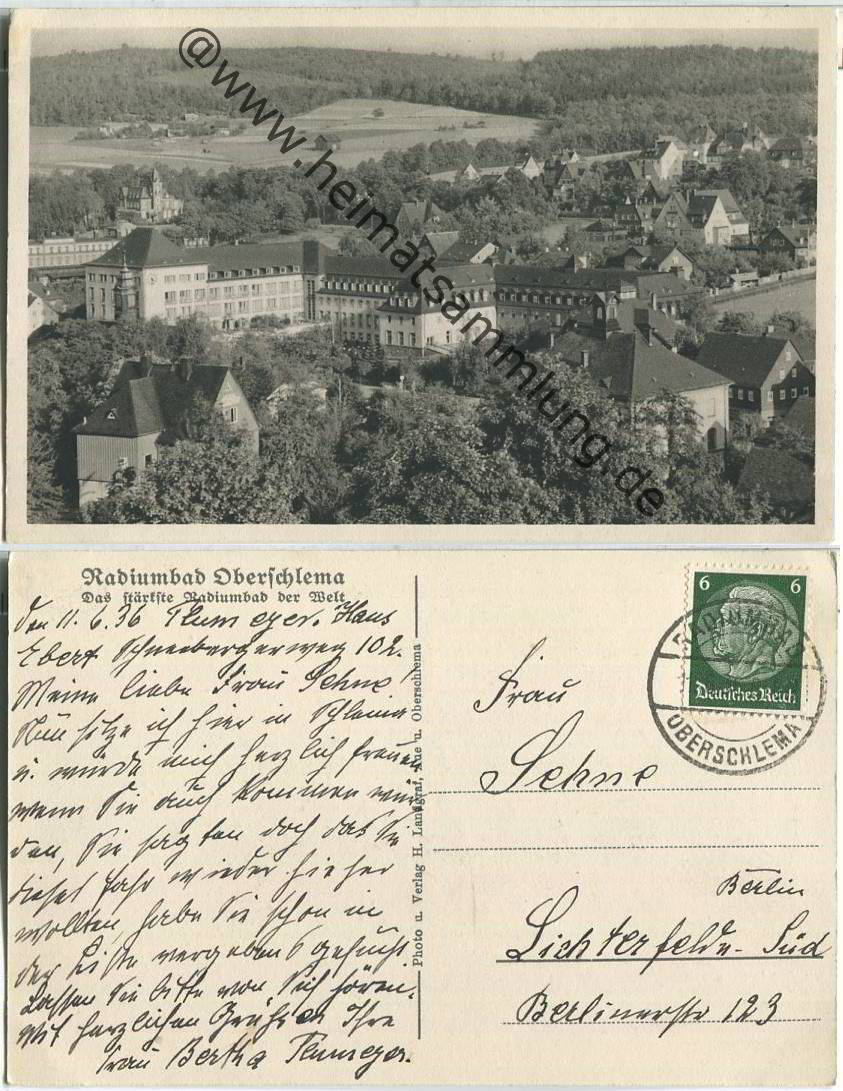 @www.heimatsammlung.de
Radiumbad Oberschlema
Das stärkste Radiumbad der Welt
den 11. 6. 36 Haus
Ebert Schneebergerweg 102.
Meine liebe Frau Sehne!
Nun sitze ich hier in Schlema
u. würde mich herzlich freuen
wenn Sie auch kommen wür
den, Sie sagten doch das Sie
dieses Jahr wieder hieher
wollten habe Sie schon in
der Liste vergebens gesucht.
Lassen Sie bitte von Sich hören.
Mit herzlichen Grüßen Ihre
Frau Bertha
Photo u. Verlag H. Landgraf, Aue u. Oberschlema
6 6
Deutsches Reich
RADIUMBAD
OBERSCHLEMA
Frau
Sehne
Berlin
Lichterfelde-Süd
Berlinerstr 123